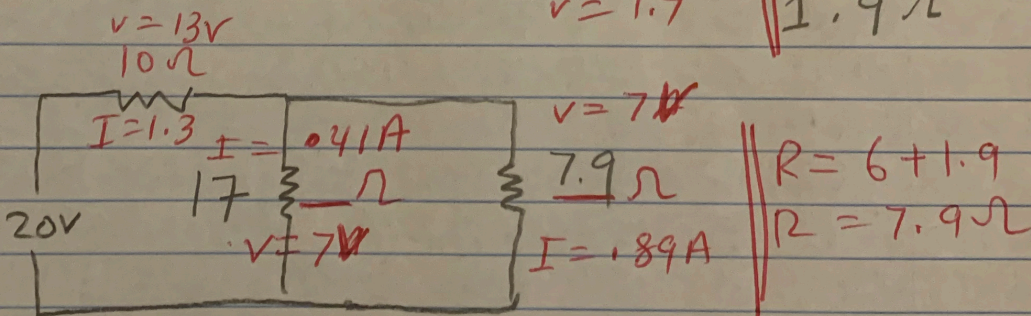 v = 1.7
1.9Ω
v = 13v
10 Ω
I = 1.3
I = .41A
17 __ Ω
v = 7v
20v
v = 7v
7.9 Ω
I = .89A
R = 6 + 1.9
R = 7.9Ω